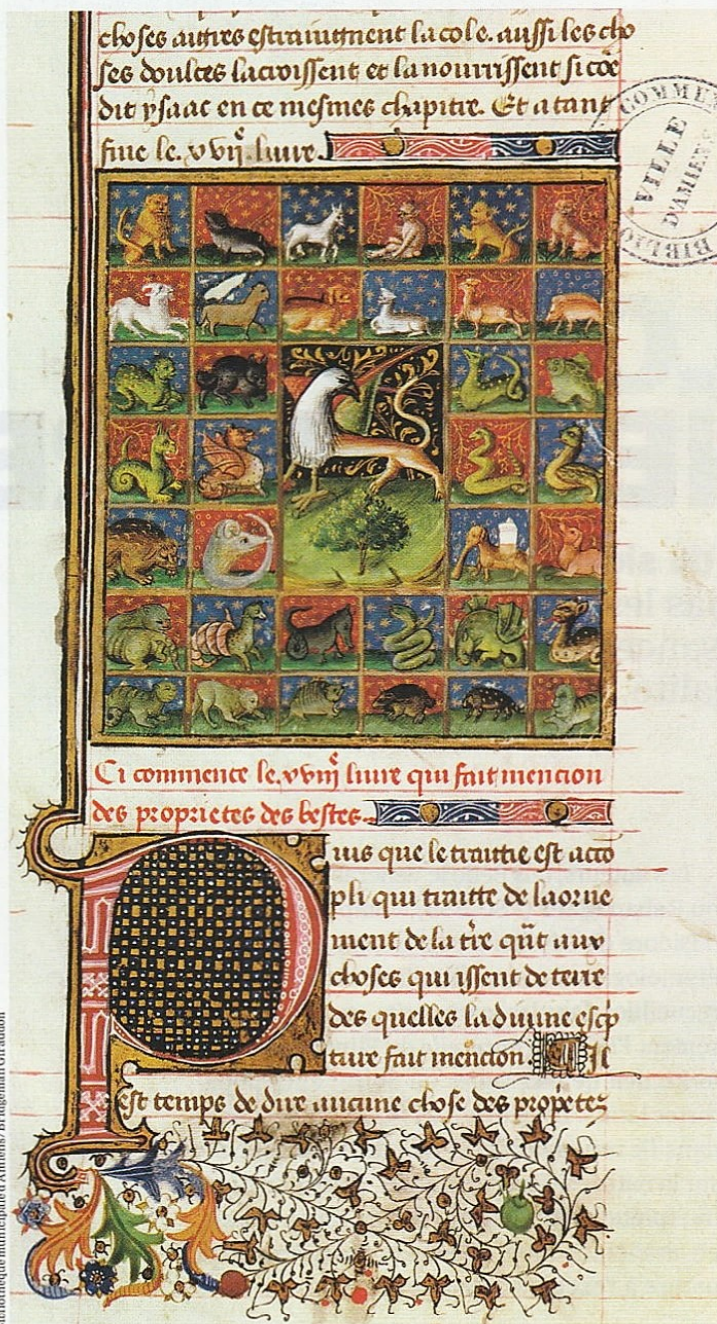 choses aigres estraingnent la cole. aussi les cho
ses doulces lacroissent et la nourrissent si cōe
dit ysaac en ce mesmes chapitre. Et a tant
fine le. xviĵ. liure.
COMMU
VILLE
D'AMIENS
BIBLIO
Ci commence le. xviiĵ. liure qui fait mencion
des proprietes des bestes.
Puis que le traittie est acco
pli qui traitte de laorne
ment de la tr̄e qūt aux
choses qui issent de terre
des quelles la diuine escp̄
ture fait mencion. Il
est temps de dire aucune chose des propetez
Bibliothèque municipale d'Amiens/Bridgeman Giraudon